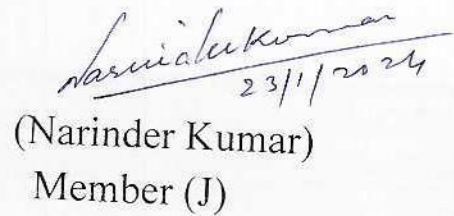 Narinder Kumar
23/1/2024
(Narinder Kumar)
Member (J)